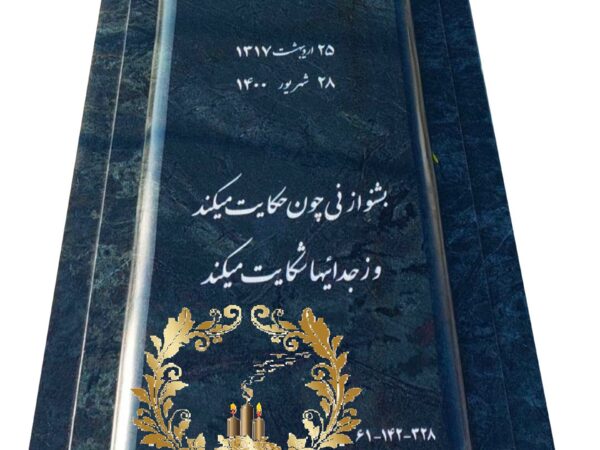 ۲۵ اردیبهشت ۱۳۱۷
۲۸ شهریور ۱۴۰۰
بشنو از نی چون حکایت میکند
وز جدائیها شکایت میکند
۶۱-۱۴۲-۳۲۸